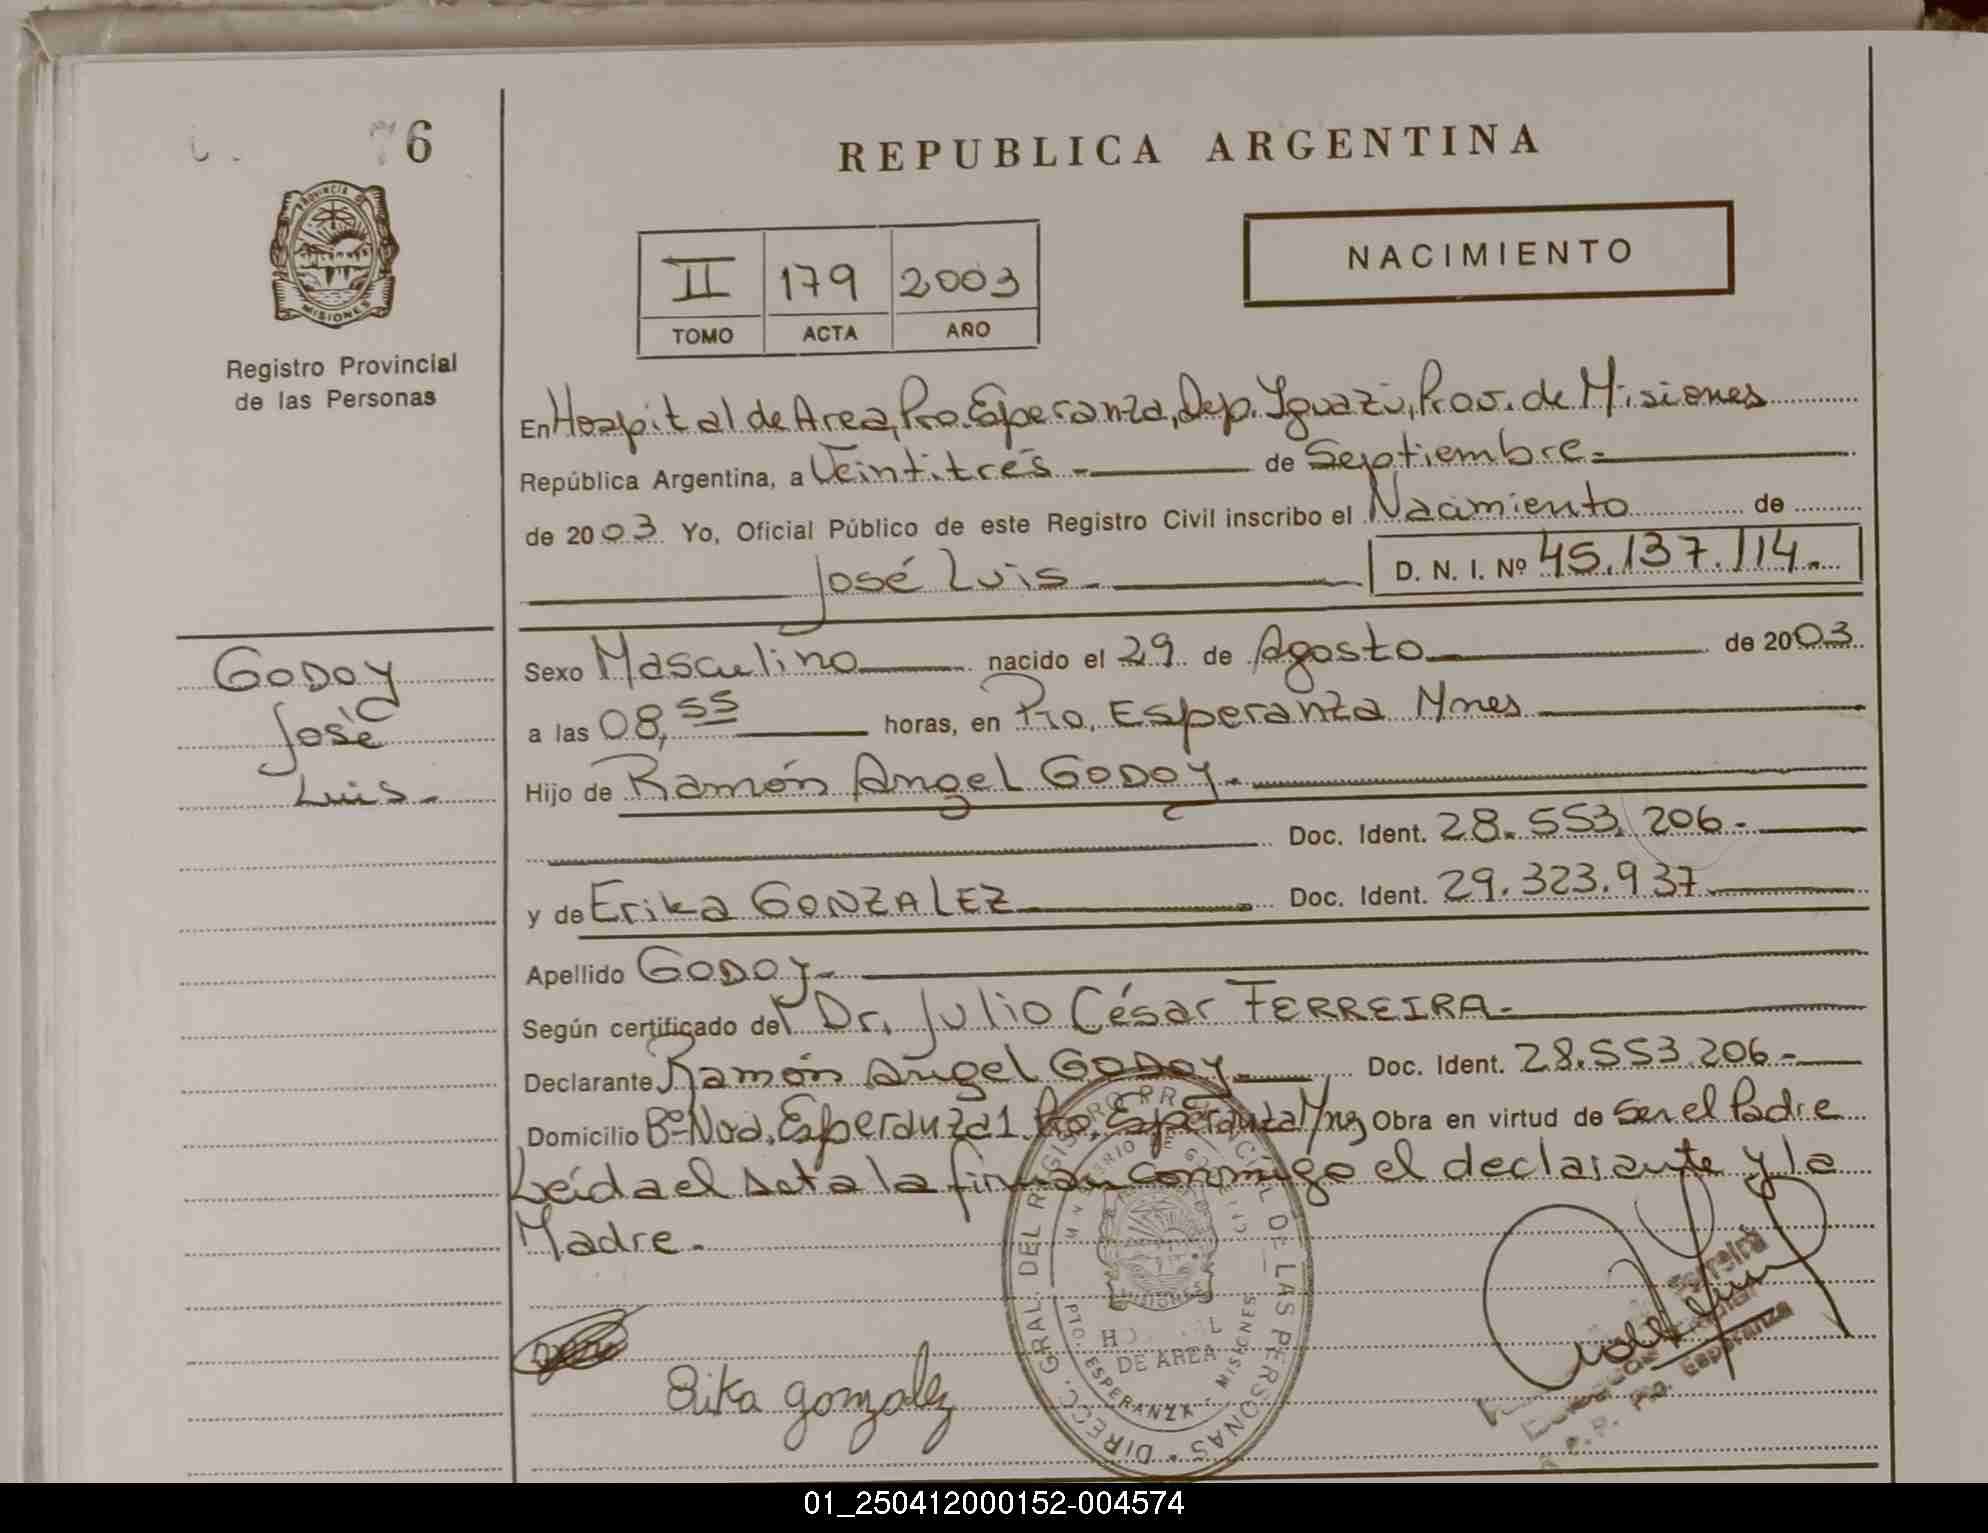 6
REPUBLICA ARGENTINA
PROVINCIA DE
MISIONES
Registro Provincial
de las Personas
II 179 2003
TOMO ACTA AÑO
NACIMIENTO
En Hospital de Area, Pto. Esperanza, Dep. Iguazú, Prov. de Misiones
República Argentina, a Veintitrés - de Septiembre.=
de 2003 Yo, Oficial Público de este Registro Civil inscribo el Nacimiento de
José Luis - D. N. I. Nº 45.137.114.
Godoy
José
Luis.-
Sexo Masculino nacido el 29 de Agosto de 2003
a las 08,55 horas, en Pto. Esperanza Mnes
Hijo de Ramón Angel GODOY.-
Doc. Ident. 28.553.206.-
y de Erika GONZALEZ Doc. Ident. 29.323.937
Apellido GODOY.-
Según certificado del Dr. Julio César FERREIRA.-
Declarante Ramón Angel GODOY Doc. Ident. 28.553.206.-
Domicilio Bº Nva. Esperanza 1 Pto. Esperanza Mnes Obra en virtud de Ser el Padre
Leída el acta la firman conmigo el declarante y la
Madre.-
Erika gonzalez
DIRECC. GRAL. DEL REGISTRO PROVINCIAL DE LAS PERSONAS
DE AREA
PTO. ESPERANZA - MISIONES
Pto. Esperanza
01_250412000152-004574